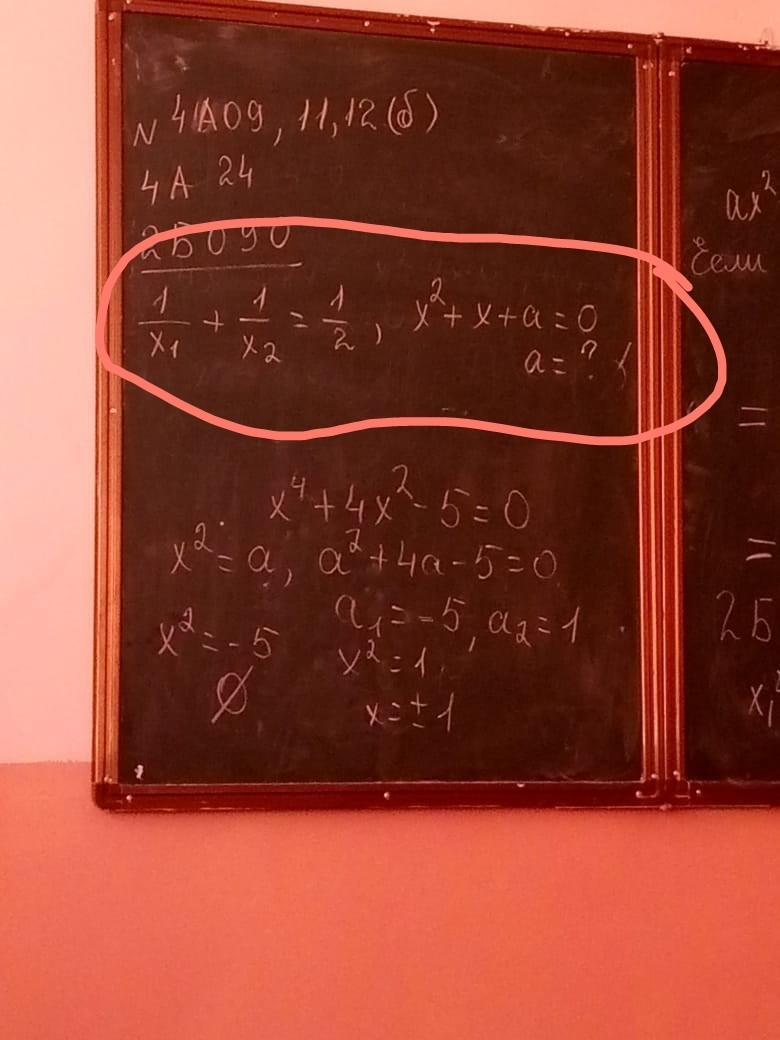 N 4A09, 11,12(б)
4A 24
2Б090
1/x₁ + 1/x₂ = 1/2, x² + x + a = 0
a = ?
x⁴ + 4x² - 5 = 0
x² = a, a² + 4a - 5 = 0
a₁ = -5, a₂ = 1
x² = -5
x² = 1
∅
x = ± 1
ax²
Если
=
=
2Б